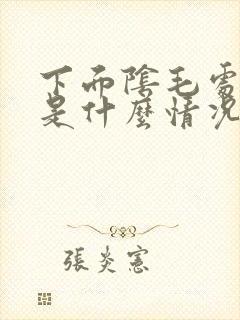 下而陰毛處
是什麼情況
張炎憲